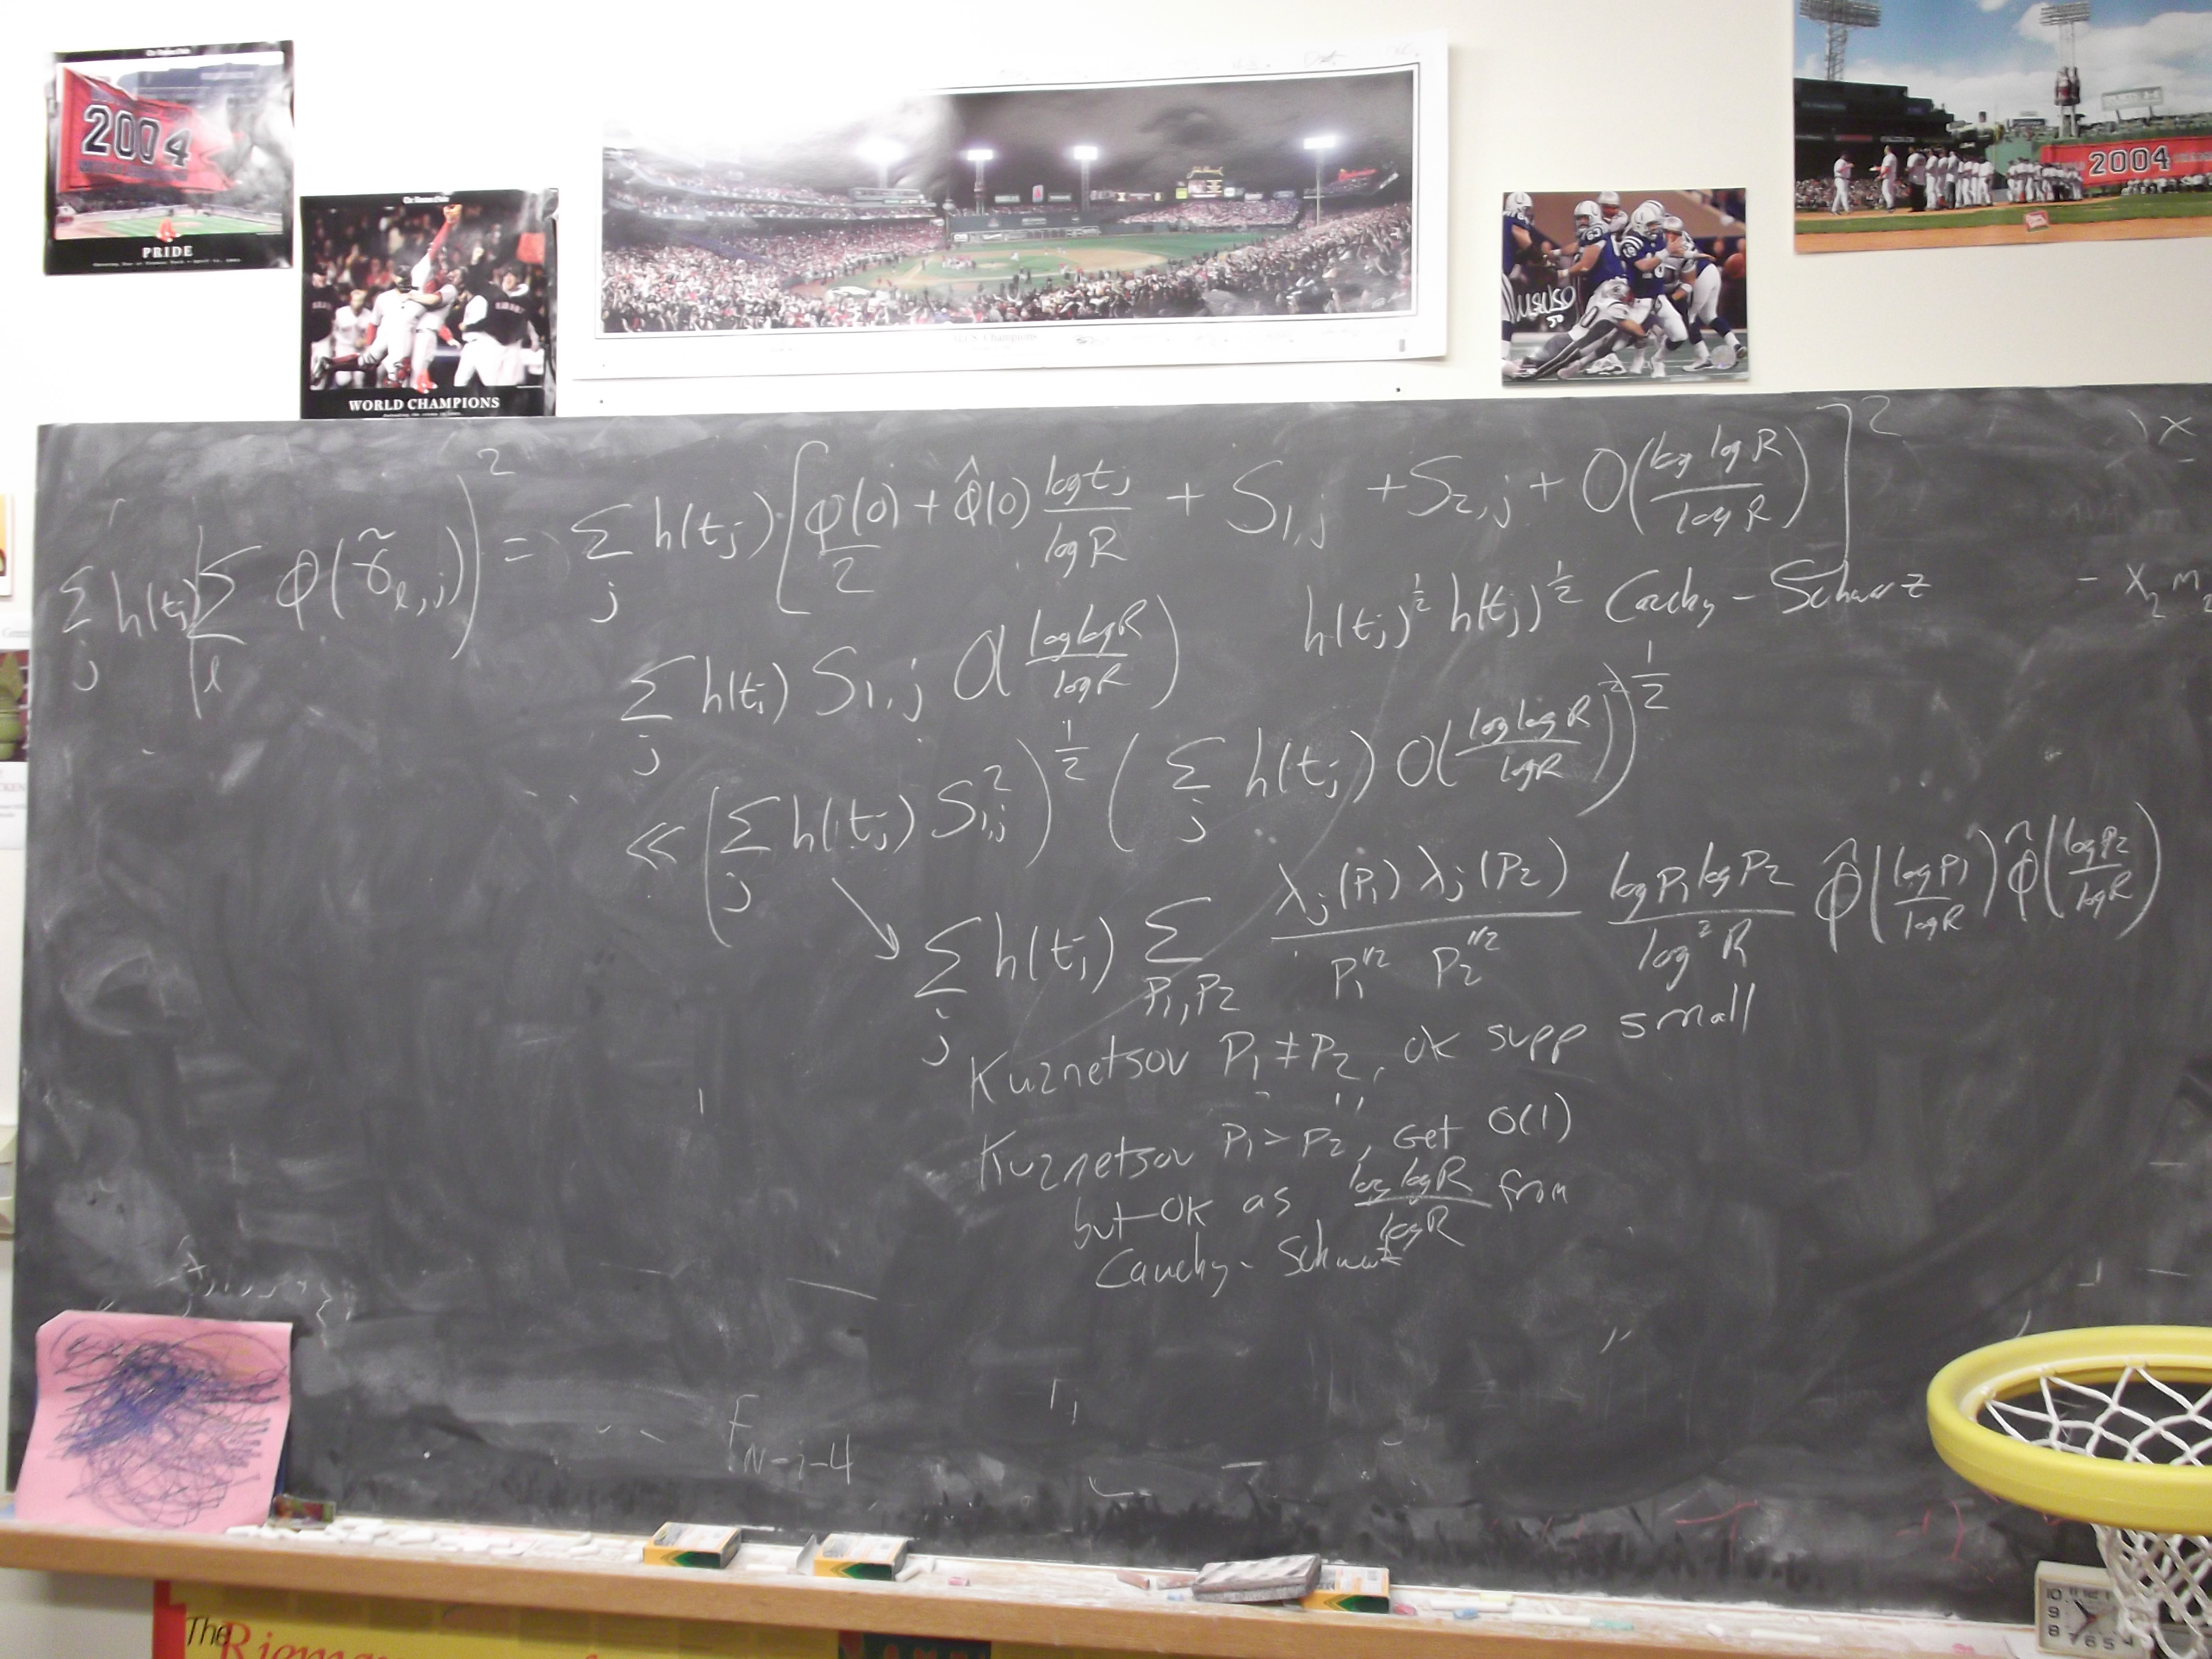 2004
PRIDE
WORLD CHAMPIONS
2004
50
∑_j h(t_j) (∑_l φ(γ̃_{l,j}))^2 = ∑_j h(t_j) [φ(0)/2 + φ̂(0) log t_j / log R + S_{1,j} + S_{2,j} + O(log log R / log R)]^2
)x
∑_j h(t_j) S_{1,j} O(log log R / log R) h(t_j)^{1/2} h(t_j)^{1/2} Cauchy-Schwarz
- x_2 m_2
≪ (∑_j h(t_j) S_{1,j}^2)^{1/2} (∑_j h(t_j) O(log log R / log R)^2)^{1/2}
↘ ∑_j h(t_j) ∑_{P_1,P_2} λ_j(P_1) λ_j(P_2) / P_1^{1/2} P_2^{1/2} log P_1 log P_2 / log^2 R φ̂(log P_1 / log R) φ̂(log P_2 / log R)
Kuznetsov P_1 ≠ P_2, ok supp small
Kuznetsov P_1 = P_2, Get O(1)
but OK as log log R / log R from
Cauchy-Schwartz
F_{N-i-4}
The Riemann
10
9
8 7 6 5